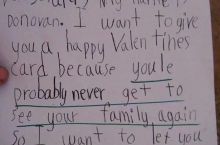 My name is
Donovan. I want to give
you a happy Valen tines
card because youle
probably never get to
see your family again
So I want to let you